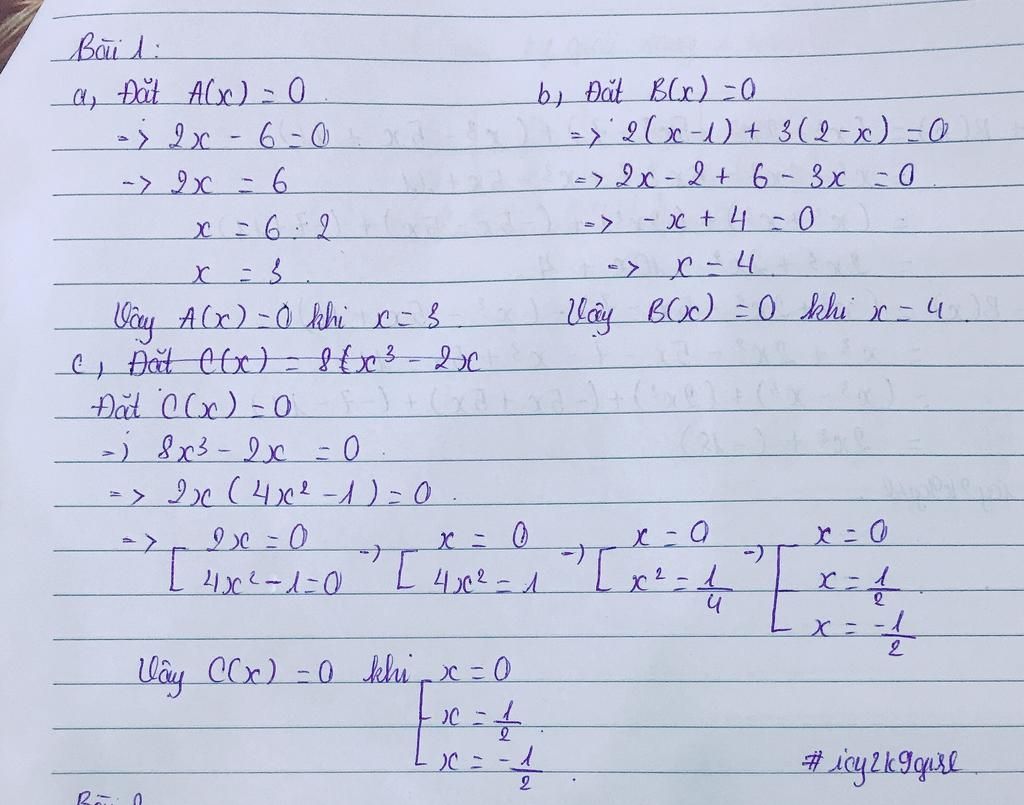 Bài 1:
a, Đặt A(x) = 0
=> 2x - 6 = 0
-> 2x = 6
x = 6 : 2
x = 3.
Vậy A(x) = 0 khi x = 3.
b, Đặt B(x) = 0
=> 2(x-1) + 3(2-x) = 0
=> 2x - 2 + 6 - 3x = 0.
=> -x + 4 = 0
=> x = 4.
Vậy B(x) = 0 khi x = 4.
c, Đặt C(x) = 8(x³ - 2x
Đặt C(x) = 0
=> 8x³ - 2x = 0.
=> 2x (4x² - 1) = 0.
=> [ 2x = 0 => [ x = 0 => [ x = 0 => [ x = 0
4x² - 1 = 0 4x² = 1 x² = 1/4 x = 1/2
x = -1/2
Vậy C(x) = 0 khi [ x = 0
x = 1/2
x = -1/2
#icy2k9girl